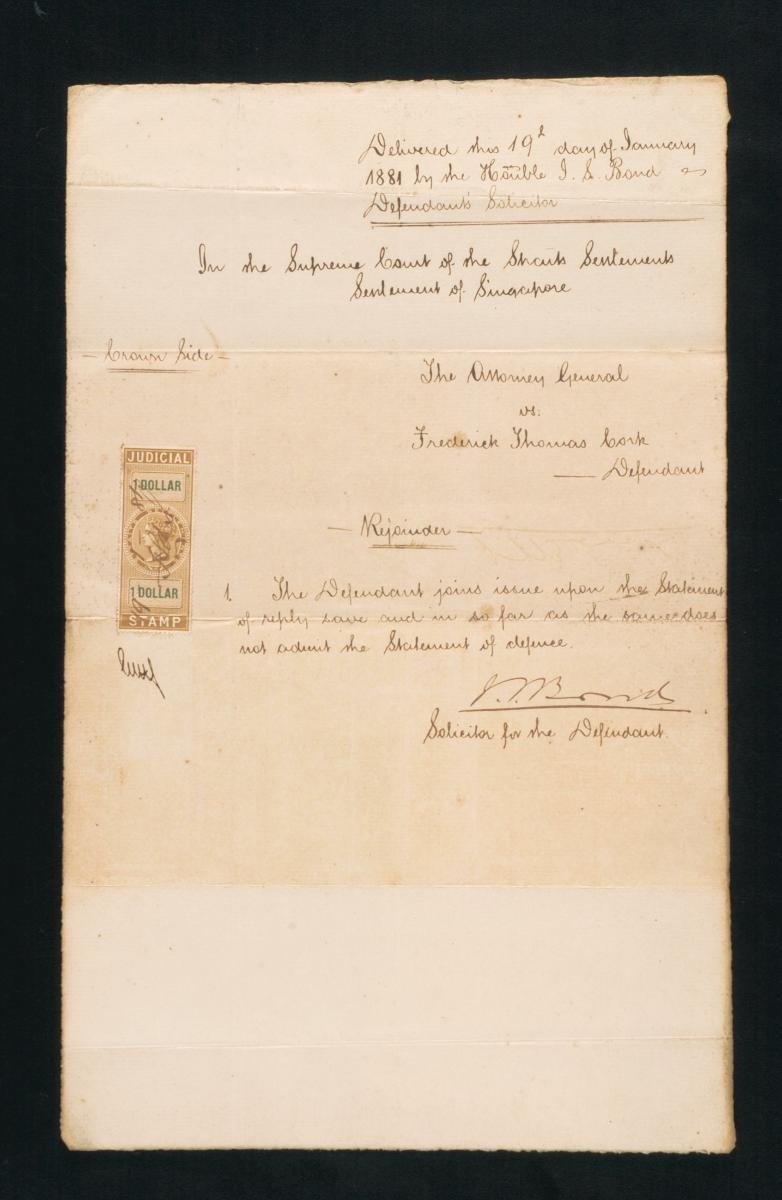 Delivered this 19th day of January
1881 by the Honble I. S. Bond
Defendant's Solicitor
In the Supreme Court of the Straits Settlements
Settlement of Singapore
— Crown Side —
The Attorney General
vs:
Frederick Thomas Cork
— Defendant
— Rejoinder —
JUDICIAL
1 DOLLAR
1 DOLLAR
STAMP
1. The Defendant joins issue upon the Statement
of reply save and in so far as the same does
not admit the Statement of defence.
I. S. Bond
Solicitor for the Defendant.